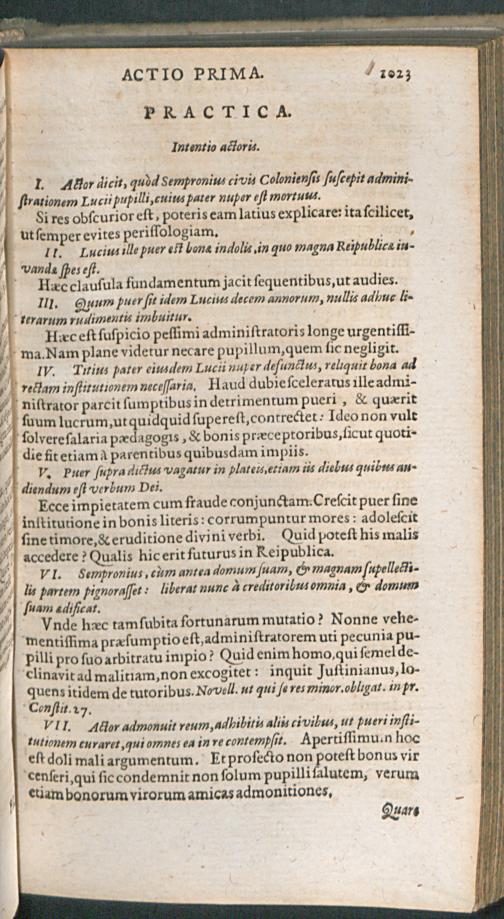 ACTIO PRIMA. 1023
PRACTICA.
Intentio actoris.
I. Actor dicit, quòd Sempronius civis Coloniensis suscepit admini-
strationem Lucii pupilli, cuius pater nuper est mortuus.
Si res obscurior est, poteris eam latius explicare: ita scilicet,
ut semper evites perissologiam.
II. Lucius ille puer est bonæ indolis, in quo magna Reipublicæ iu-
vandæ spes est.
Hæc clausula fundamentum jacit sequentibus, ut audies.
III. Quum puer sit idem Lucius decem annorum, nullis adhuc li-
terarum rudimentis imbuitur.
Hæc est suspicio pessimi administratoris longe urgentissi-
ma. Nam plane videtur necare pupillum, quem sic negligit.
IV. Titius pater eiusdem Lucii nuper defunctus, reliquit bona ad
rectam institutionem necessaria. Haud dubie sceleratus ille admi-
nistrator parcit sumptibus in detrimentum pueri, & quærit
suum lucrum, ut quidquid superest, contrectet: Ideo non vult
solvere salaria pædagogis, & bonis præceptoribus, sicut quoti-
die fit etiam à parentibus quibusdam impiis.
V. Puer supra dictus vagatur in plateis, etiam iis diebus quibus au-
diendum est verbum Dei.
Ecce impietatem cum fraude conjunctam. Crescit puer sine
institutione in bonis literis: corrumpuntur mores: adolescit
sine timore, & eruditione divini verbi. Quid potest his malis
accedere? Qualis hic erit futurus in Reipublica.
VI. Sempronius, cùm antea domum suam, & magnam supellecti-
lis partem pignorasset: liberat nunc à creditoribus omnia, & domum
suam ædificat.
Vnde hæc tam subita fortunarum mutatio? Nonne vehe-
mentissima præsumptio est, administratorem uti pecunia pu-
pilli pro suo arbitratu impio? Quid enim homo, qui semel de-
clinavit ad malitiam, non excogitet: inquit Justinianus, lo-
quens itidem de tutoribus. Novell. ut qui se res minor. obligat. in pr.
Constit. 27.
VII. Actor admonuit reum, adhibitis aliis civibus, ut pueri insti-
tutionem curaret, qui omnes ea in re contempsit. Apertissimum hoc
est doli mali argumentum. Et profecto non potest bonus vir
censeri, qui sic condemnit non solum pupilli salutem, verum
etiam bonorum virorum amicas admonitiones.
Quare